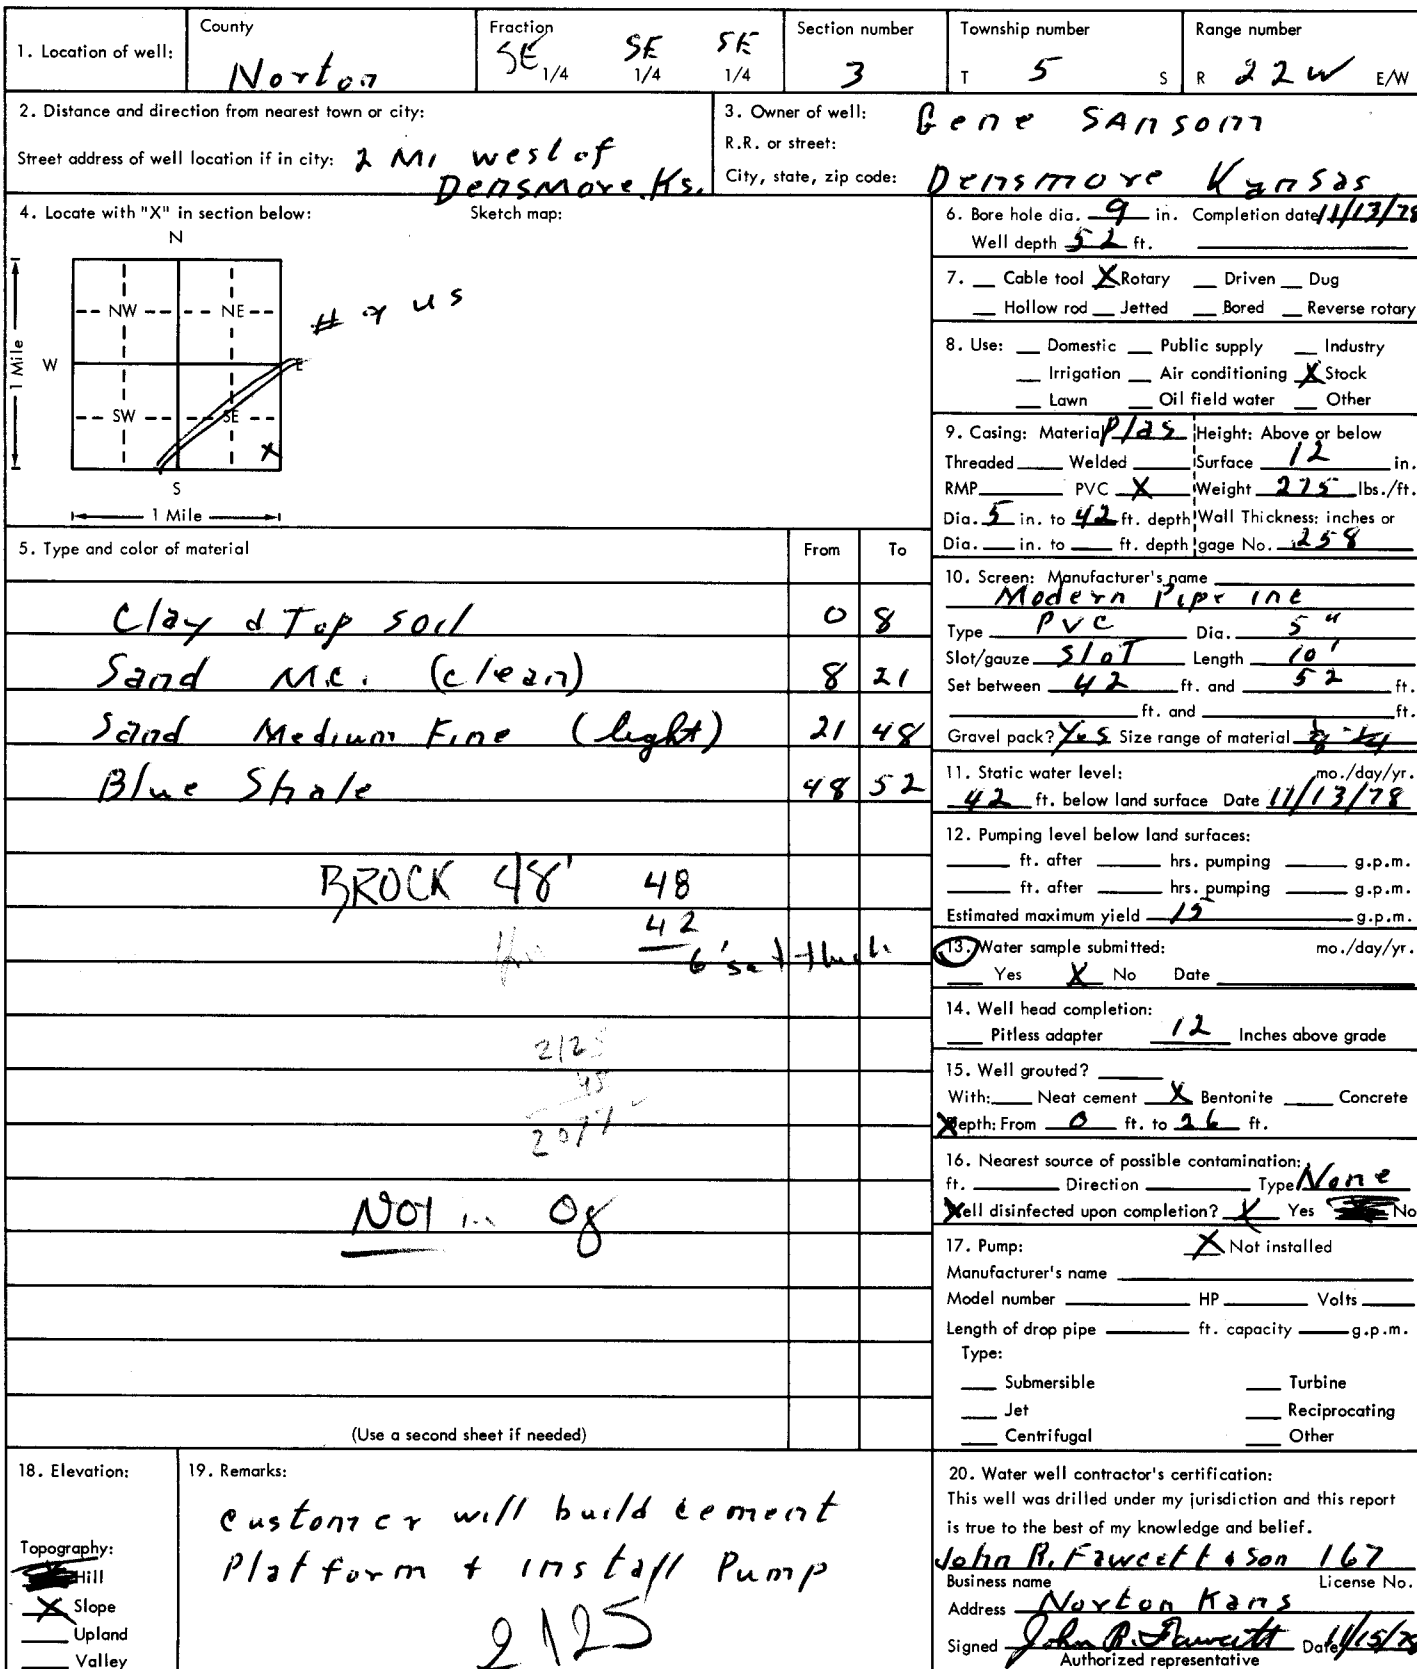 1. Location of well:
County
Norton
Fraction
SE 1/4 SE 1/4 SE 1/4
Section number
3
Township number
T 5 S
Range number
R 22W E/W
2. Distance and direction from nearest town or city:
Street address of well location if in city: 2 Mi west of
Densmore, Ks.
3. Owner of well: Gene Sansom
R.R. or street:
City, state, zip code: Densmore Kansas
4. Locate with "X" in section below:
Sketch map:
N
NW NE
W E
SW SE
X
S
1 Mile
1 Mile
# us
5. Type and color of material From To
Clay & Top Soil 0 8
Sand M.C. (clean) 8 21
Sand Medium Fine (light) 21 48
Blue Shale 48 52
BROCK 48' 48
42
6' sat thick
2125
48
2077
Not in Og
(Use a second sheet if needed)
6. Bore hole dia. 9 in. Completion date 11/13/78
Well depth 52 ft.
7. Cable tool X Rotary Driven Dug
Hollow rod Jetted Bored Reverse rotary
8. Use: Domestic Public supply Industry
Irrigation Air conditioning X Stock
Lawn Oil field water Other
9. Casing: Material Plas Height: Above or below
Threaded Welded Surface 12 in.
RMP PVC X Weight 275 lbs./ft.
Dia. 5 in. to 42 ft. depth Wall Thickness: inches or
Dia. in. to ft. depth gage No. .258
10. Screen: Manufacturer's name
Modern Pipe Inc
Type PVC Dia. 5"
Slot/gauze Slot Length 10'
Set between 42 ft. and 52 ft.
ft. and ft.
Gravel pack? Yes Size range of material 1/8 - 1/4
11. Static water level: mo./day/yr.
42 ft. below land surface Date 11/13/78
12. Pumping level below land surfaces:
ft. after hrs. pumping g.p.m.
ft. after hrs. pumping g.p.m.
Estimated maximum yield 15 g.p.m.
13. Water sample submitted: mo./day/yr.
Yes X No Date
14. Well head completion:
Pitless adapter 12 Inches above grade
15. Well grouted?
With: Neat cement X Bentonite Concrete
Depth: From 0 ft. to 26 ft.
16. Nearest source of possible contamination:
ft. Direction Type None
Well disinfected upon completion? X Yes No
17. Pump: X Not installed
Manufacturer's name
Model number HP Volts
Length of drop pipe ft. capacity g.p.m.
Type:
Submersible Turbine
Jet Reciprocating
Centrifugal Other
18. Elevation:
Topography:
Hill
X Slope
Upland
Valley
19. Remarks:
Customer will build cement
Platform + install Pump
2125
20. Water well contractor's certification:
This well was drilled under my jurisdiction and this report
is true to the best of my knowledge and belief.
John R. Fawcett & Son 167
Business name License No.
Address Norton Kans
Signed John R. Fawcett Date 11/15/78
Authorized representative